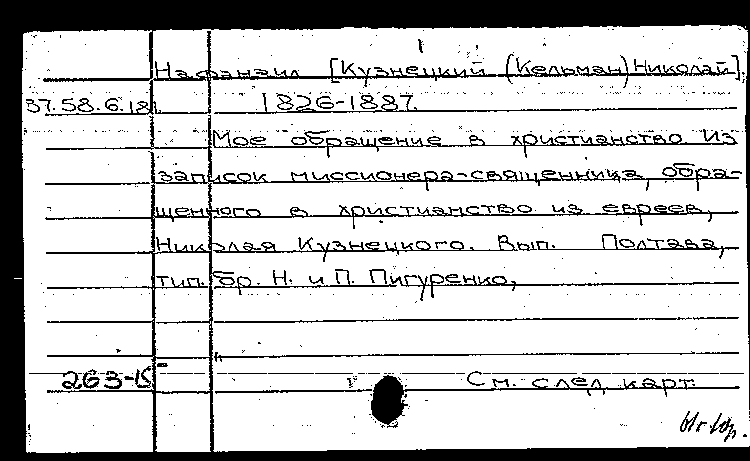 Нафанаил [Кузнецкий (Кельман) Николай]
37.58.6.181. 1826-1887.
Мое обращение в христианство. Из
записок миссионера-священника, обра-
щенного в христианство из евреев,
Николая Кузнецкого. Вып. Полтава,
тип. бр. Н. и П. Пигуренко,
263-15
См. след. карт.